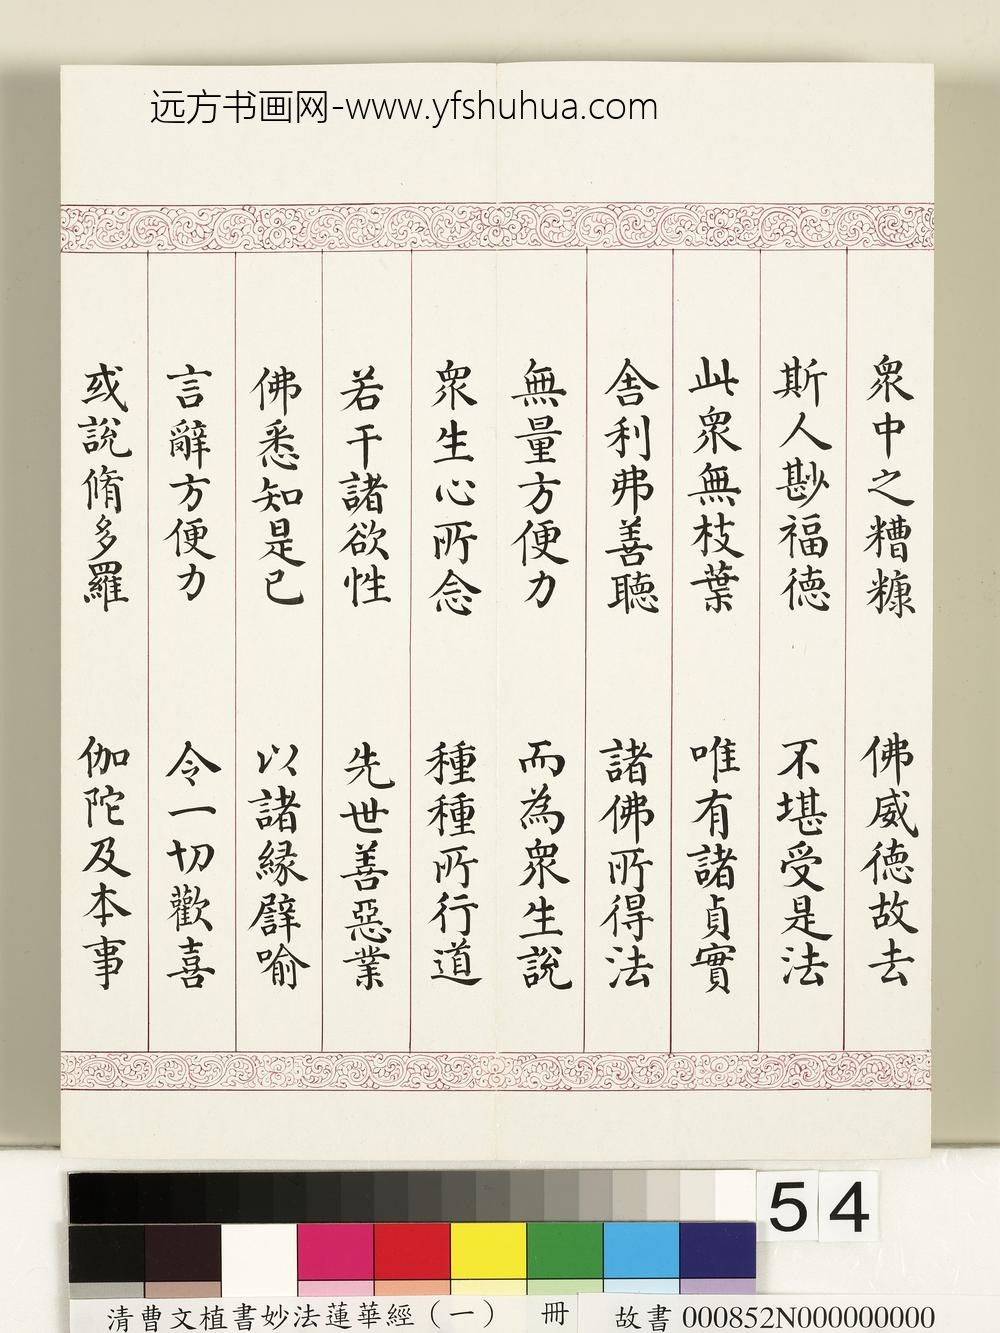 远方书画网-www.yfshuhua.com
衆中之糟糠 佛威徳故去
斯人尠福德 不堪受是法
此衆無枝葉 唯有諸貞實
舍利弗善聽 諸佛所得法
無量方便力 而為衆生說
衆生心所念 種種所行道
若干諸欲性 先世善惡業
佛悉知是已 以諸緣譬喻
言辭方便力 令一切歡喜
或說脩多羅 伽陀及本事
54
清曹文植書妙法蓮華經（一） 冊 故書 000852N000000000